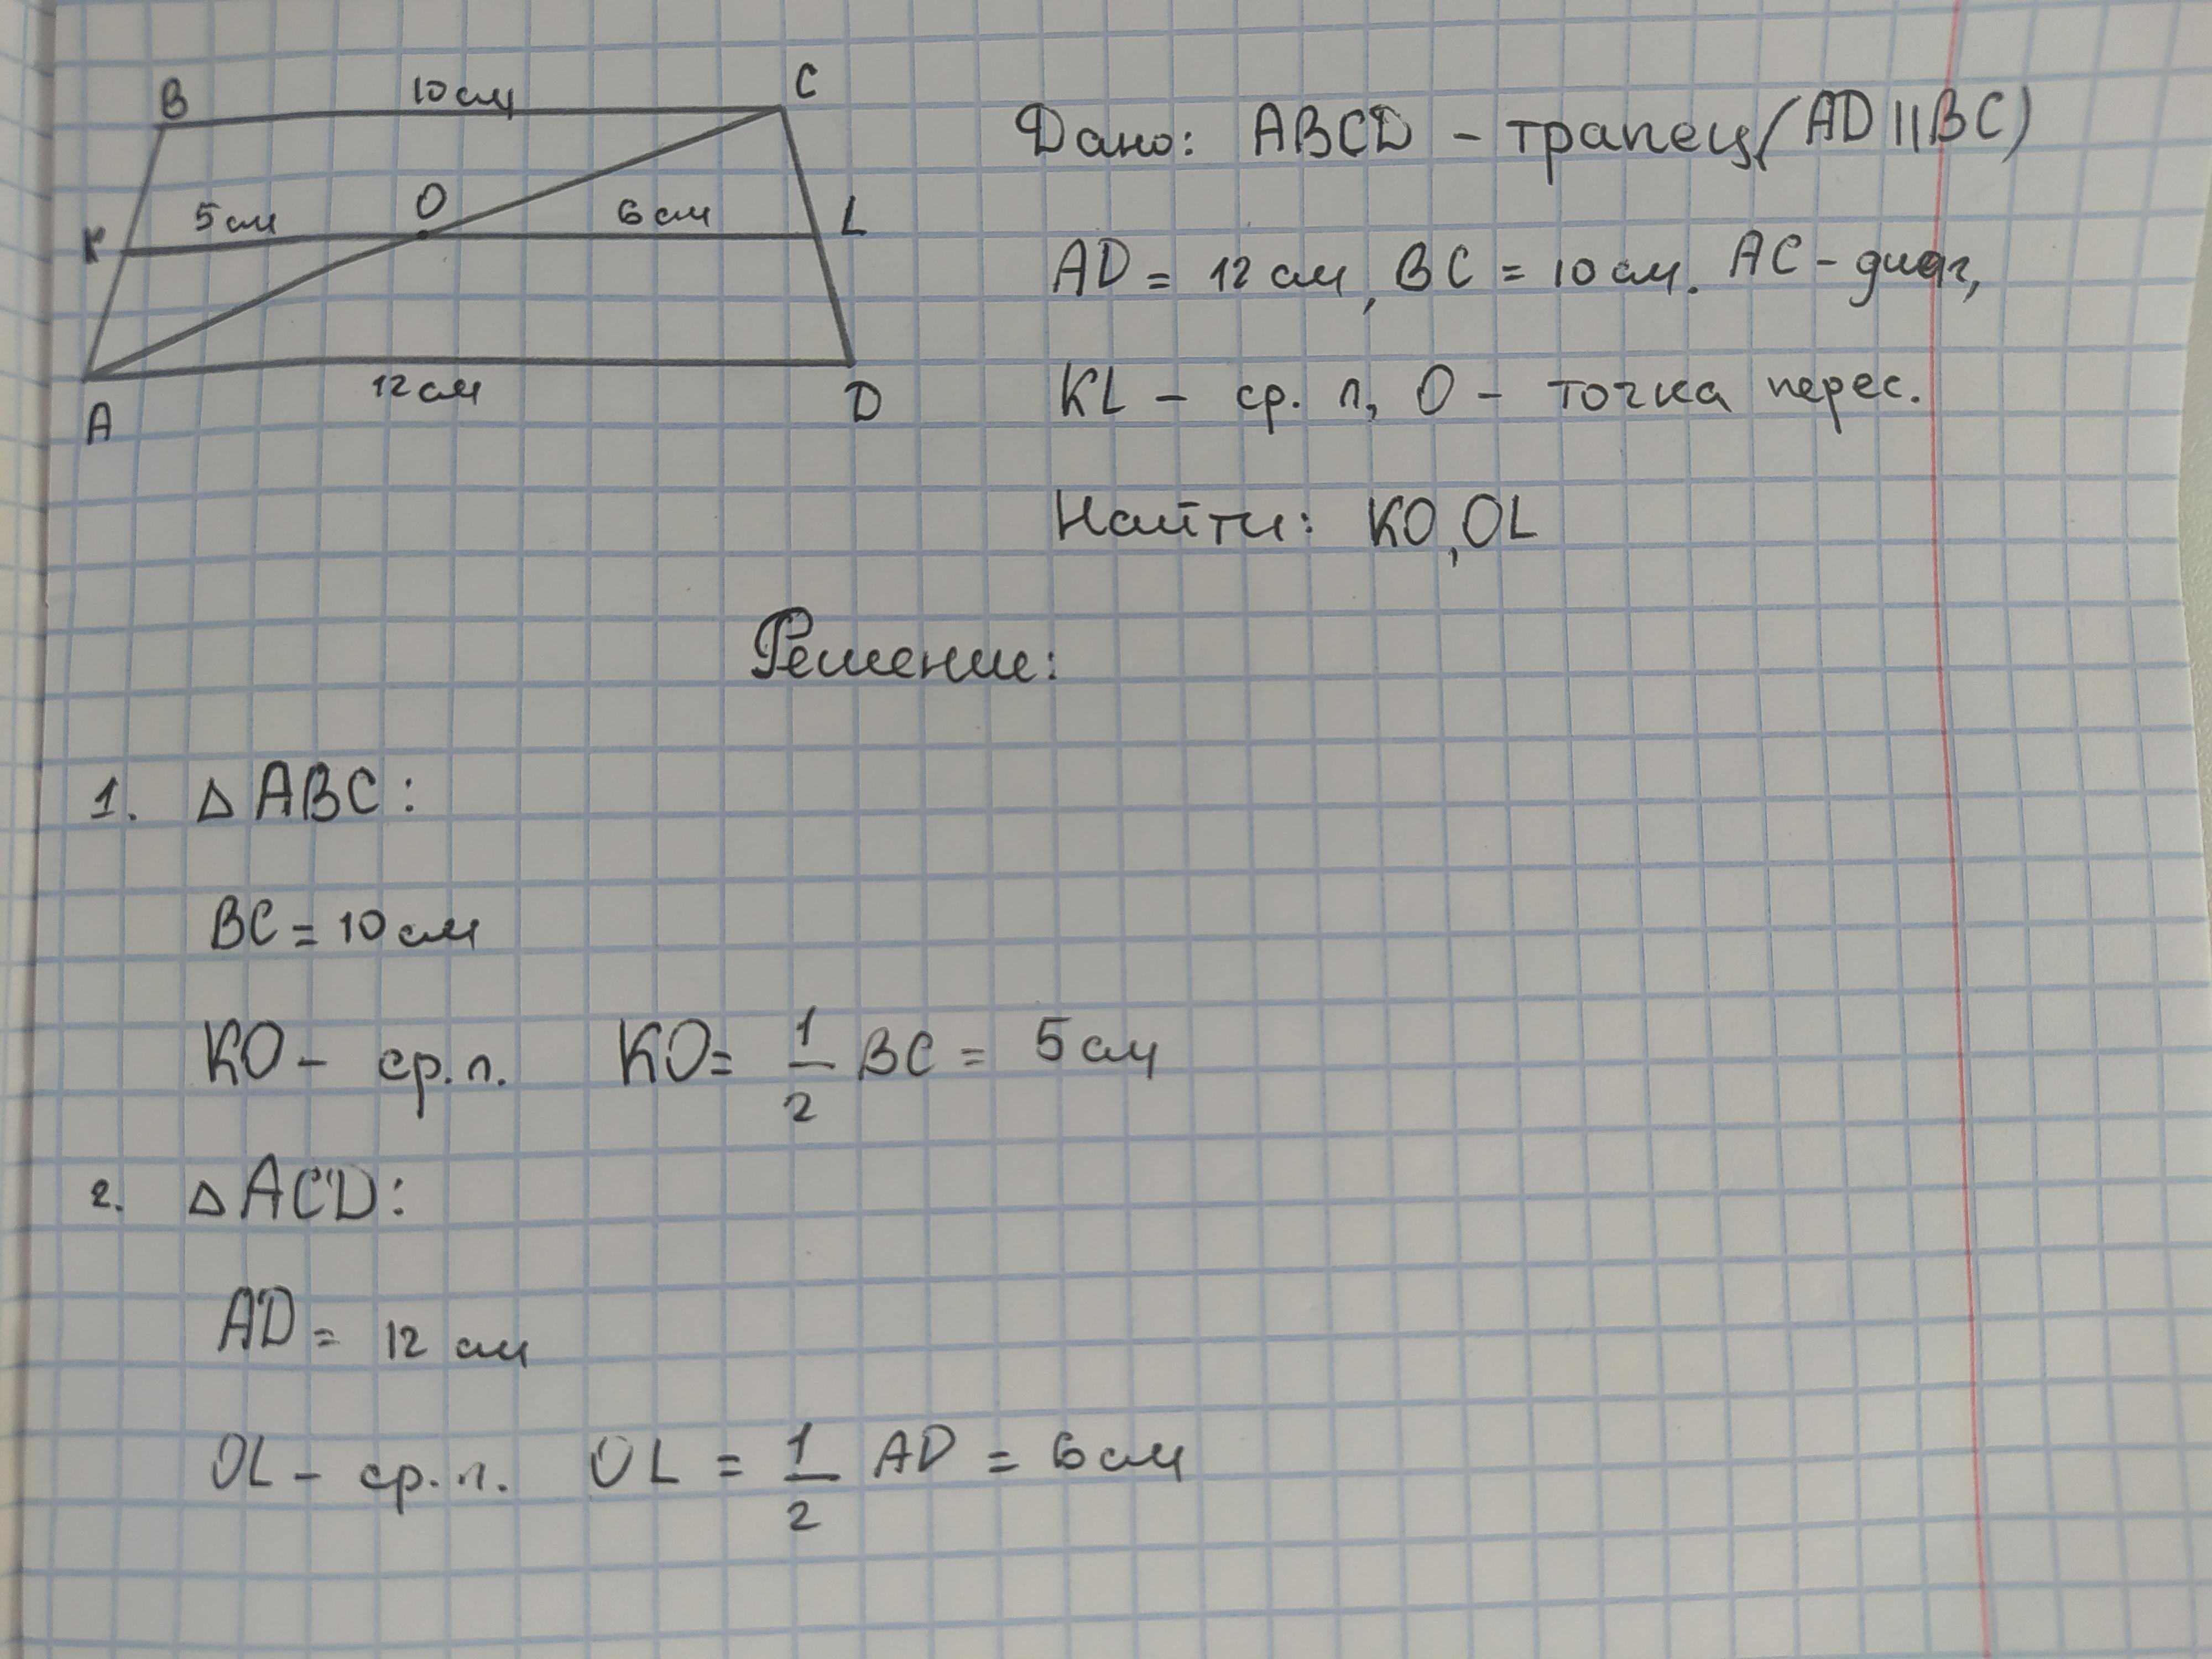 B 10 см C
Дано: ABCD - трапец (AD || BC)
K 5 см O 6 см L
AD = 12 см, BC = 10 см. AC - диаг,
A 12 см D
KL - ср. л, O - точка перес.
Найти: KO, OL
Решение:
1. △ ABC:
BC = 10 см
KO - ср. л. KO = 1/2 BC = 5 см
2. △ ACD:
AD = 12 см
OL - ср. л. OL = 1/2 AD = 6 см